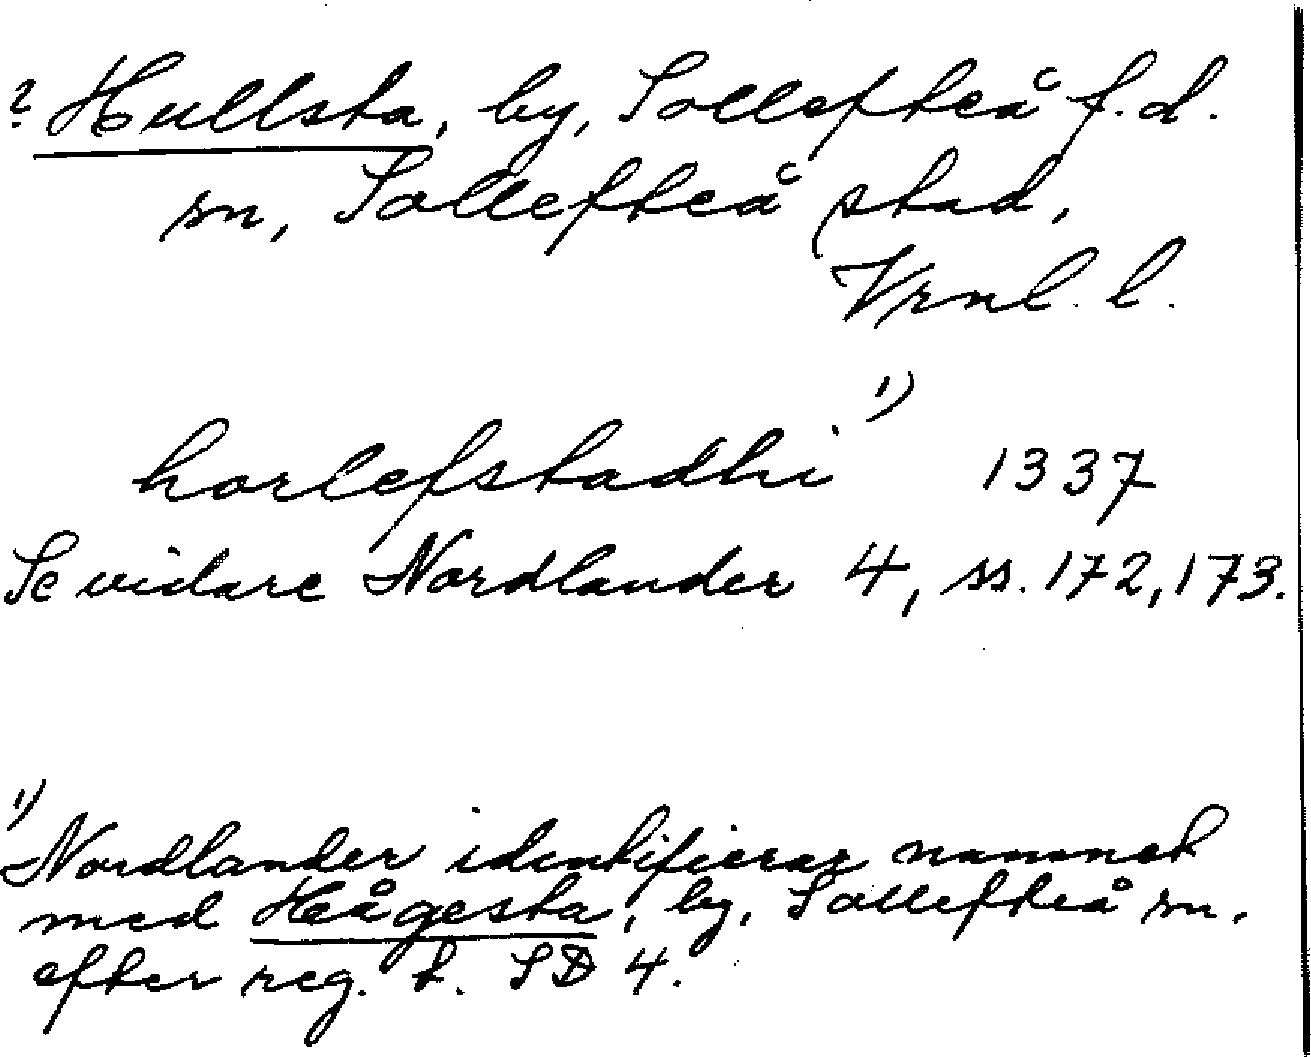 ? Hullsta, by, Sollefteå f.d.
sn, Sollefteå stad,
Vrnl. l.
horlefstadhi 1) 1337
Se vidare Nordlander 4, ss. 172, 173.
1) Nordlander identifierar namnet
med Hågesta, by, Sollefteå sn.
efter reg. t. SD 4.